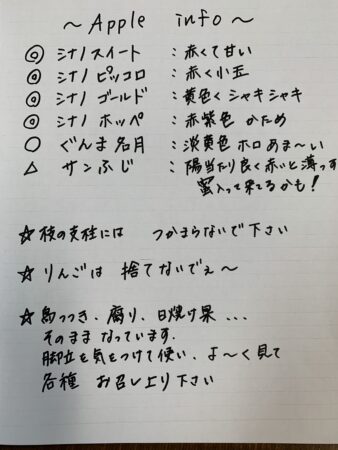 ～Apple info～
◎ シナノスイート ：赤くて甘い
◎ シナノ ピッコロ ：赤く小玉
◎ シナノ ゴールド ：黄色く シャキシャキ
◎ シナノ ホッペ ：赤紫色 かため
○ ぐんま名月 ：淡黄色 ホロ あま～い
△ サンふじ ：陽当たり良く赤いと薄っす
蜜入って来てるかも！
☆ 枝の支柱には つかまらないで下さい
☆ りんごは 捨てないでぇ～
☆ 鳥つつき、腐り、日焼け果 ...
そのまま なっています.
脚立を気をつけて使い、よ～く見て
各種 お召し上り下さい